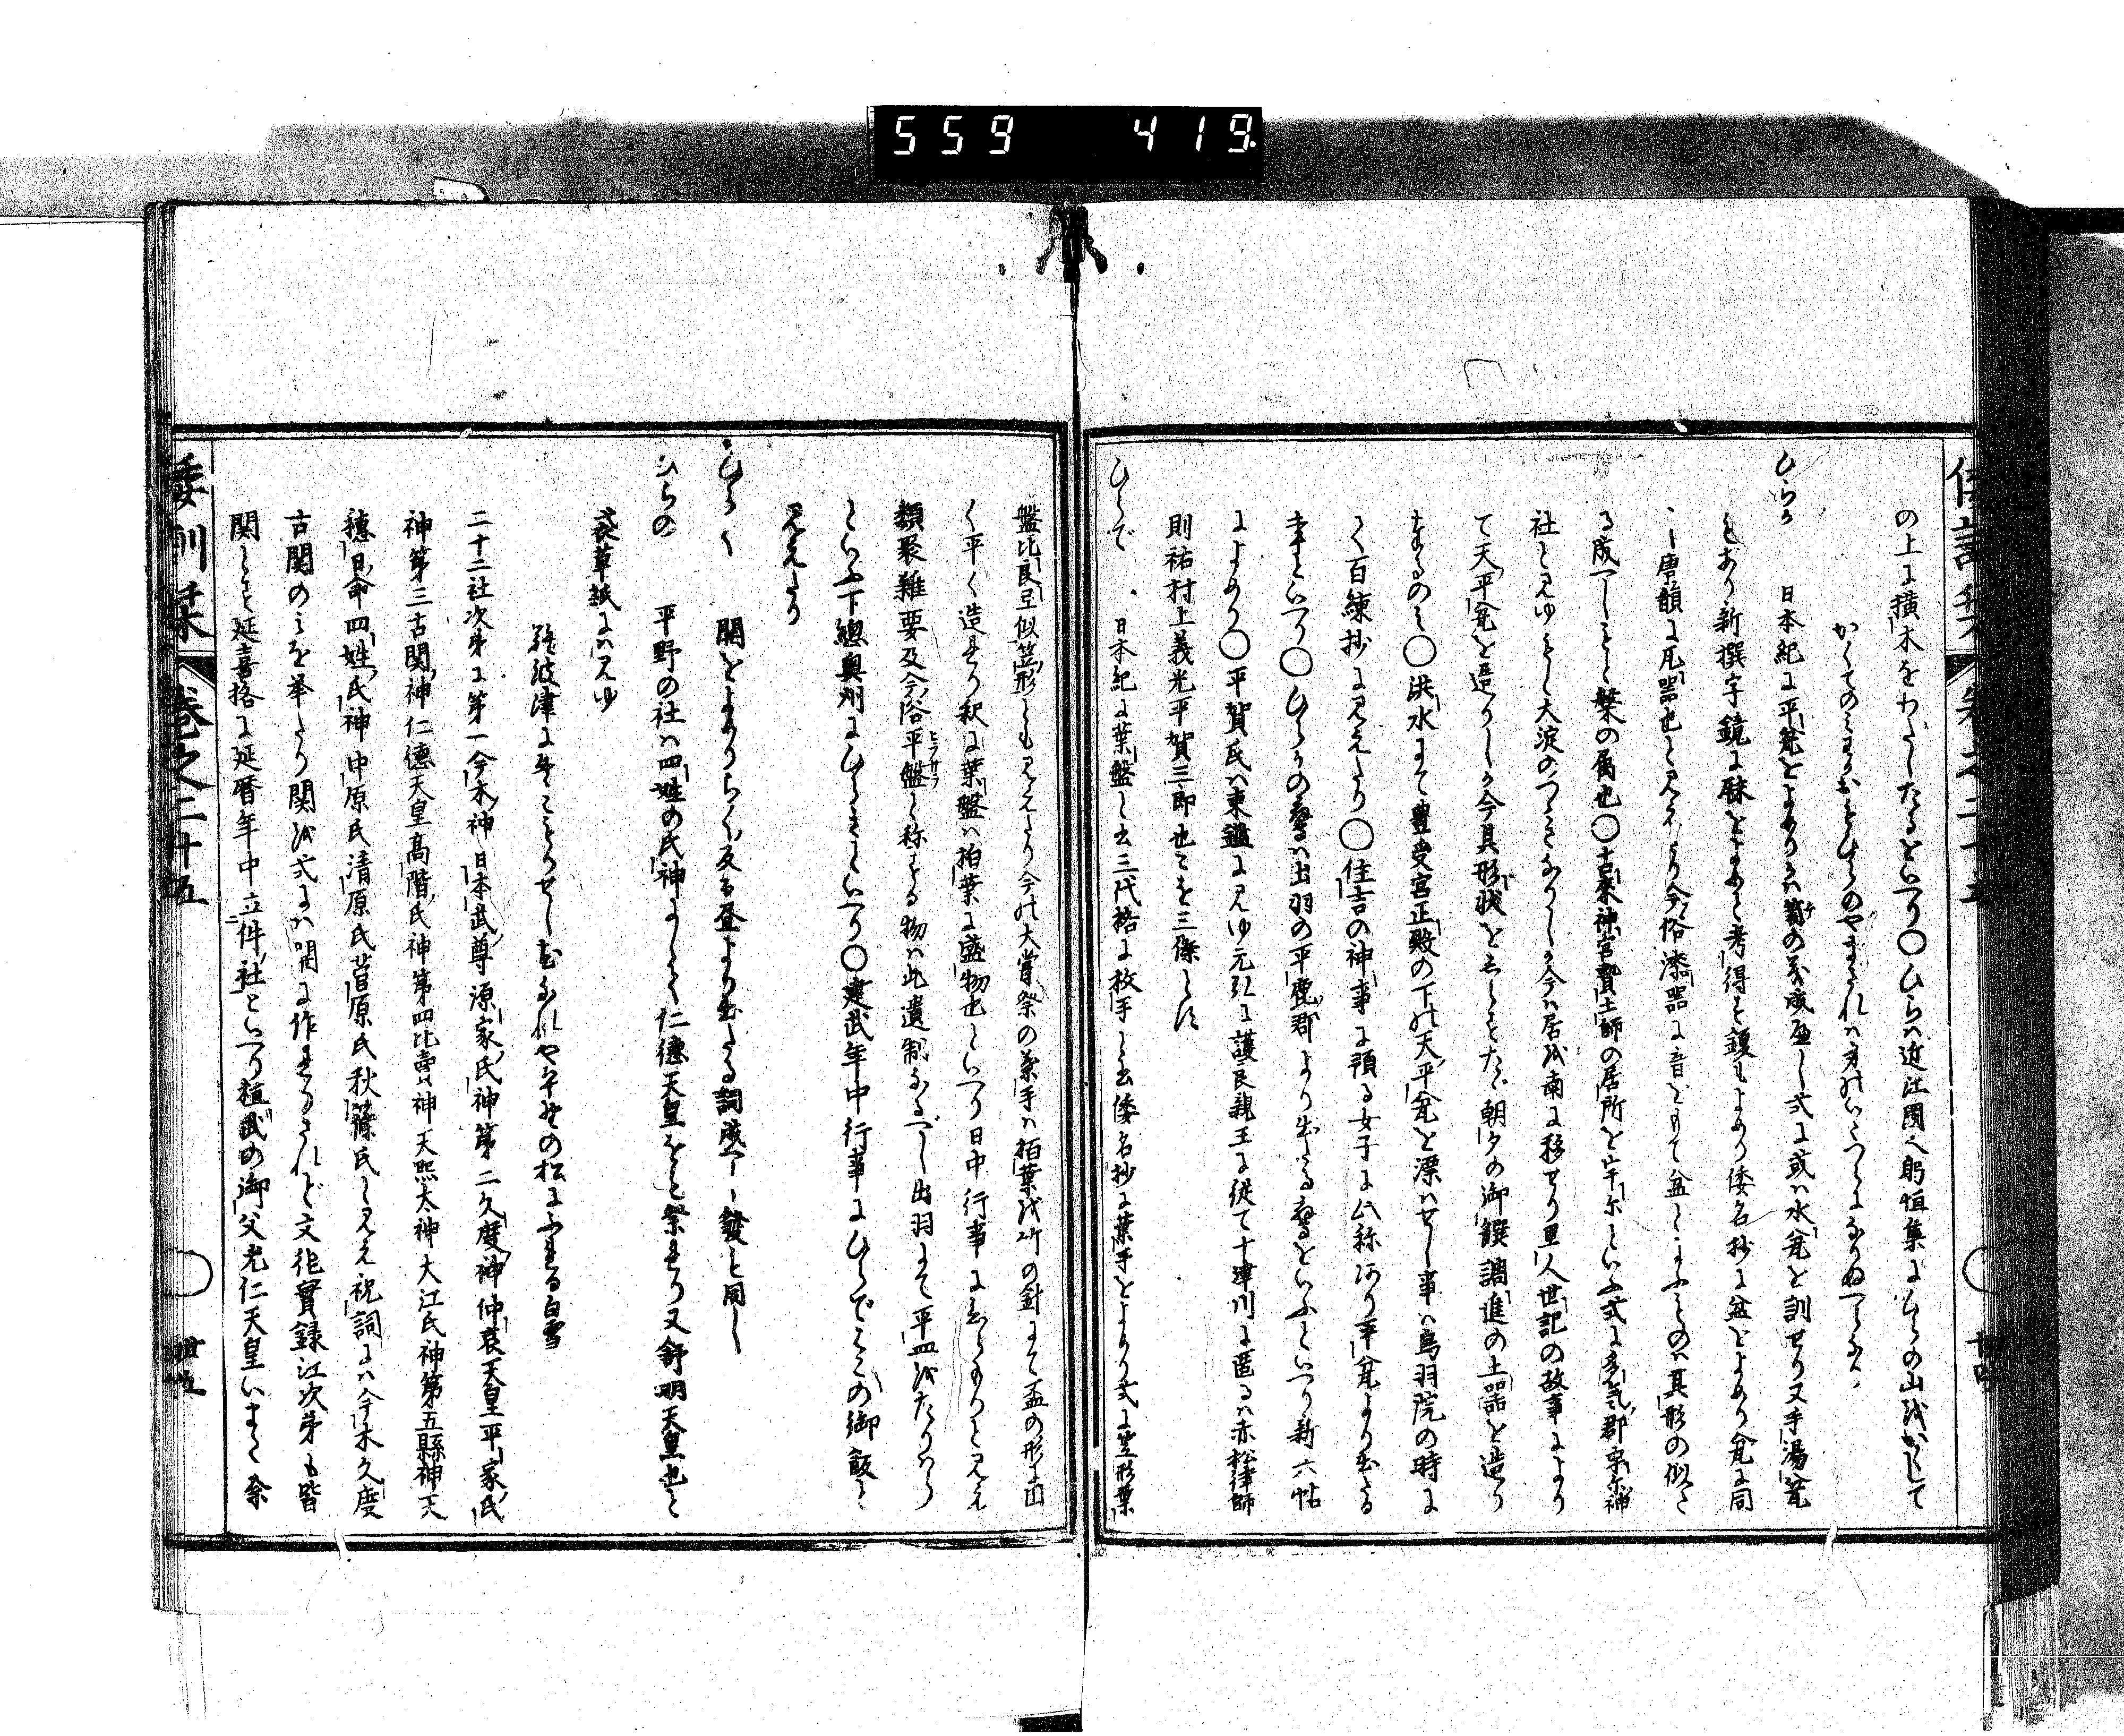 559 419
の上に横木をわたしたるをいへり○ひらは近江国也躬恒集にひらの山をがくして
かくてのみわがおもひらのやまざれは身はいたつらになりぬべらなり
ひらか 日本紀に平瓮をよめりさは笥の義成へし式に或は水瓮を訓せり又手湯瓮
もあり新撰字鏡に䤅をよめり考得ず鑁もよめり倭名抄に盆をよめり瓮に同
し唐韻に瓦器也と見えたり今俗漆器に音をもて盆といふものは其形の似た
る成へしもと盤の属也○古來神宮貢土師の居所を宇尓といふ式に多気郡宇尓神
社と見ゆもと大淀のつゝきなりしが今は居を南に移せり里人世記の故事により
て天平瓮を造りしが今其形状を失ふもたゞ朝夕の御饌調進の土器を造り
奉るのみ○洪水にて豊受宮正殿の下の天平瓮を漂はせし事は鳥羽院の時に
て百練抄に見えたり○住吉の神事に預る女子に此称あり平瓮より出たる
事といへり○ひらかの鷹は出羽の平鹿郡より出たる鷹をいふといへり新六帖
によめり○平賀氏は東鑑に見ゆ元弘に護良親王に従て十津川に匿るは赤松律師
則祐村上義光平賀三郎也こを三傑とす
ひらで 日本紀に葉盤と云三代格に枚手と云倭名抄に葉手をよめり式に笠形葉
倭訓栞 卷之二十五 廿四
盤比良弖似笠形とも見えたり今の大嘗祭の葉手は柏葉を竹の針にて盃の形に円
く平く造るなり釈に葉盤は柏葉に盛物也といへり日中行事にひらもりと見え
類聚雜要及今俗平盤と称する物は此遺制なるべし出羽にて平皿をたりはら
といふ下總奥州にひらきといへり○建武年中行事にひらでここの御飯と
見えたり
ひらく 開をよめりらく反る昼より出たる詞成へし發も同し
ひらの 平野の社は四姓の氏神よしもと仁德天皇をも祭るなり又舒明天皇也と
袋草紙には見ゆ
難波津に冬こもりせし花なれや平野の松にふれる白雪
二十二社次第に第一今木神日本武尊源家氏神第二久度神仲哀天皇平家氏
神第三古関神仁德天皇高階氏神第四比賣神天照太神大江氏神第五縣神天
穗日命四姓氏神中原氏清原氏菅原氏秋篠氏と見え祝詞には今木久度
古関のみを挙たり関を式には開に作るなりされど文德實録江次第も皆
関とす延喜格に延暦年中立件社といへり桓武の御父光仁天皇いまた奈
倭訓栞 卷之二十五 廿五